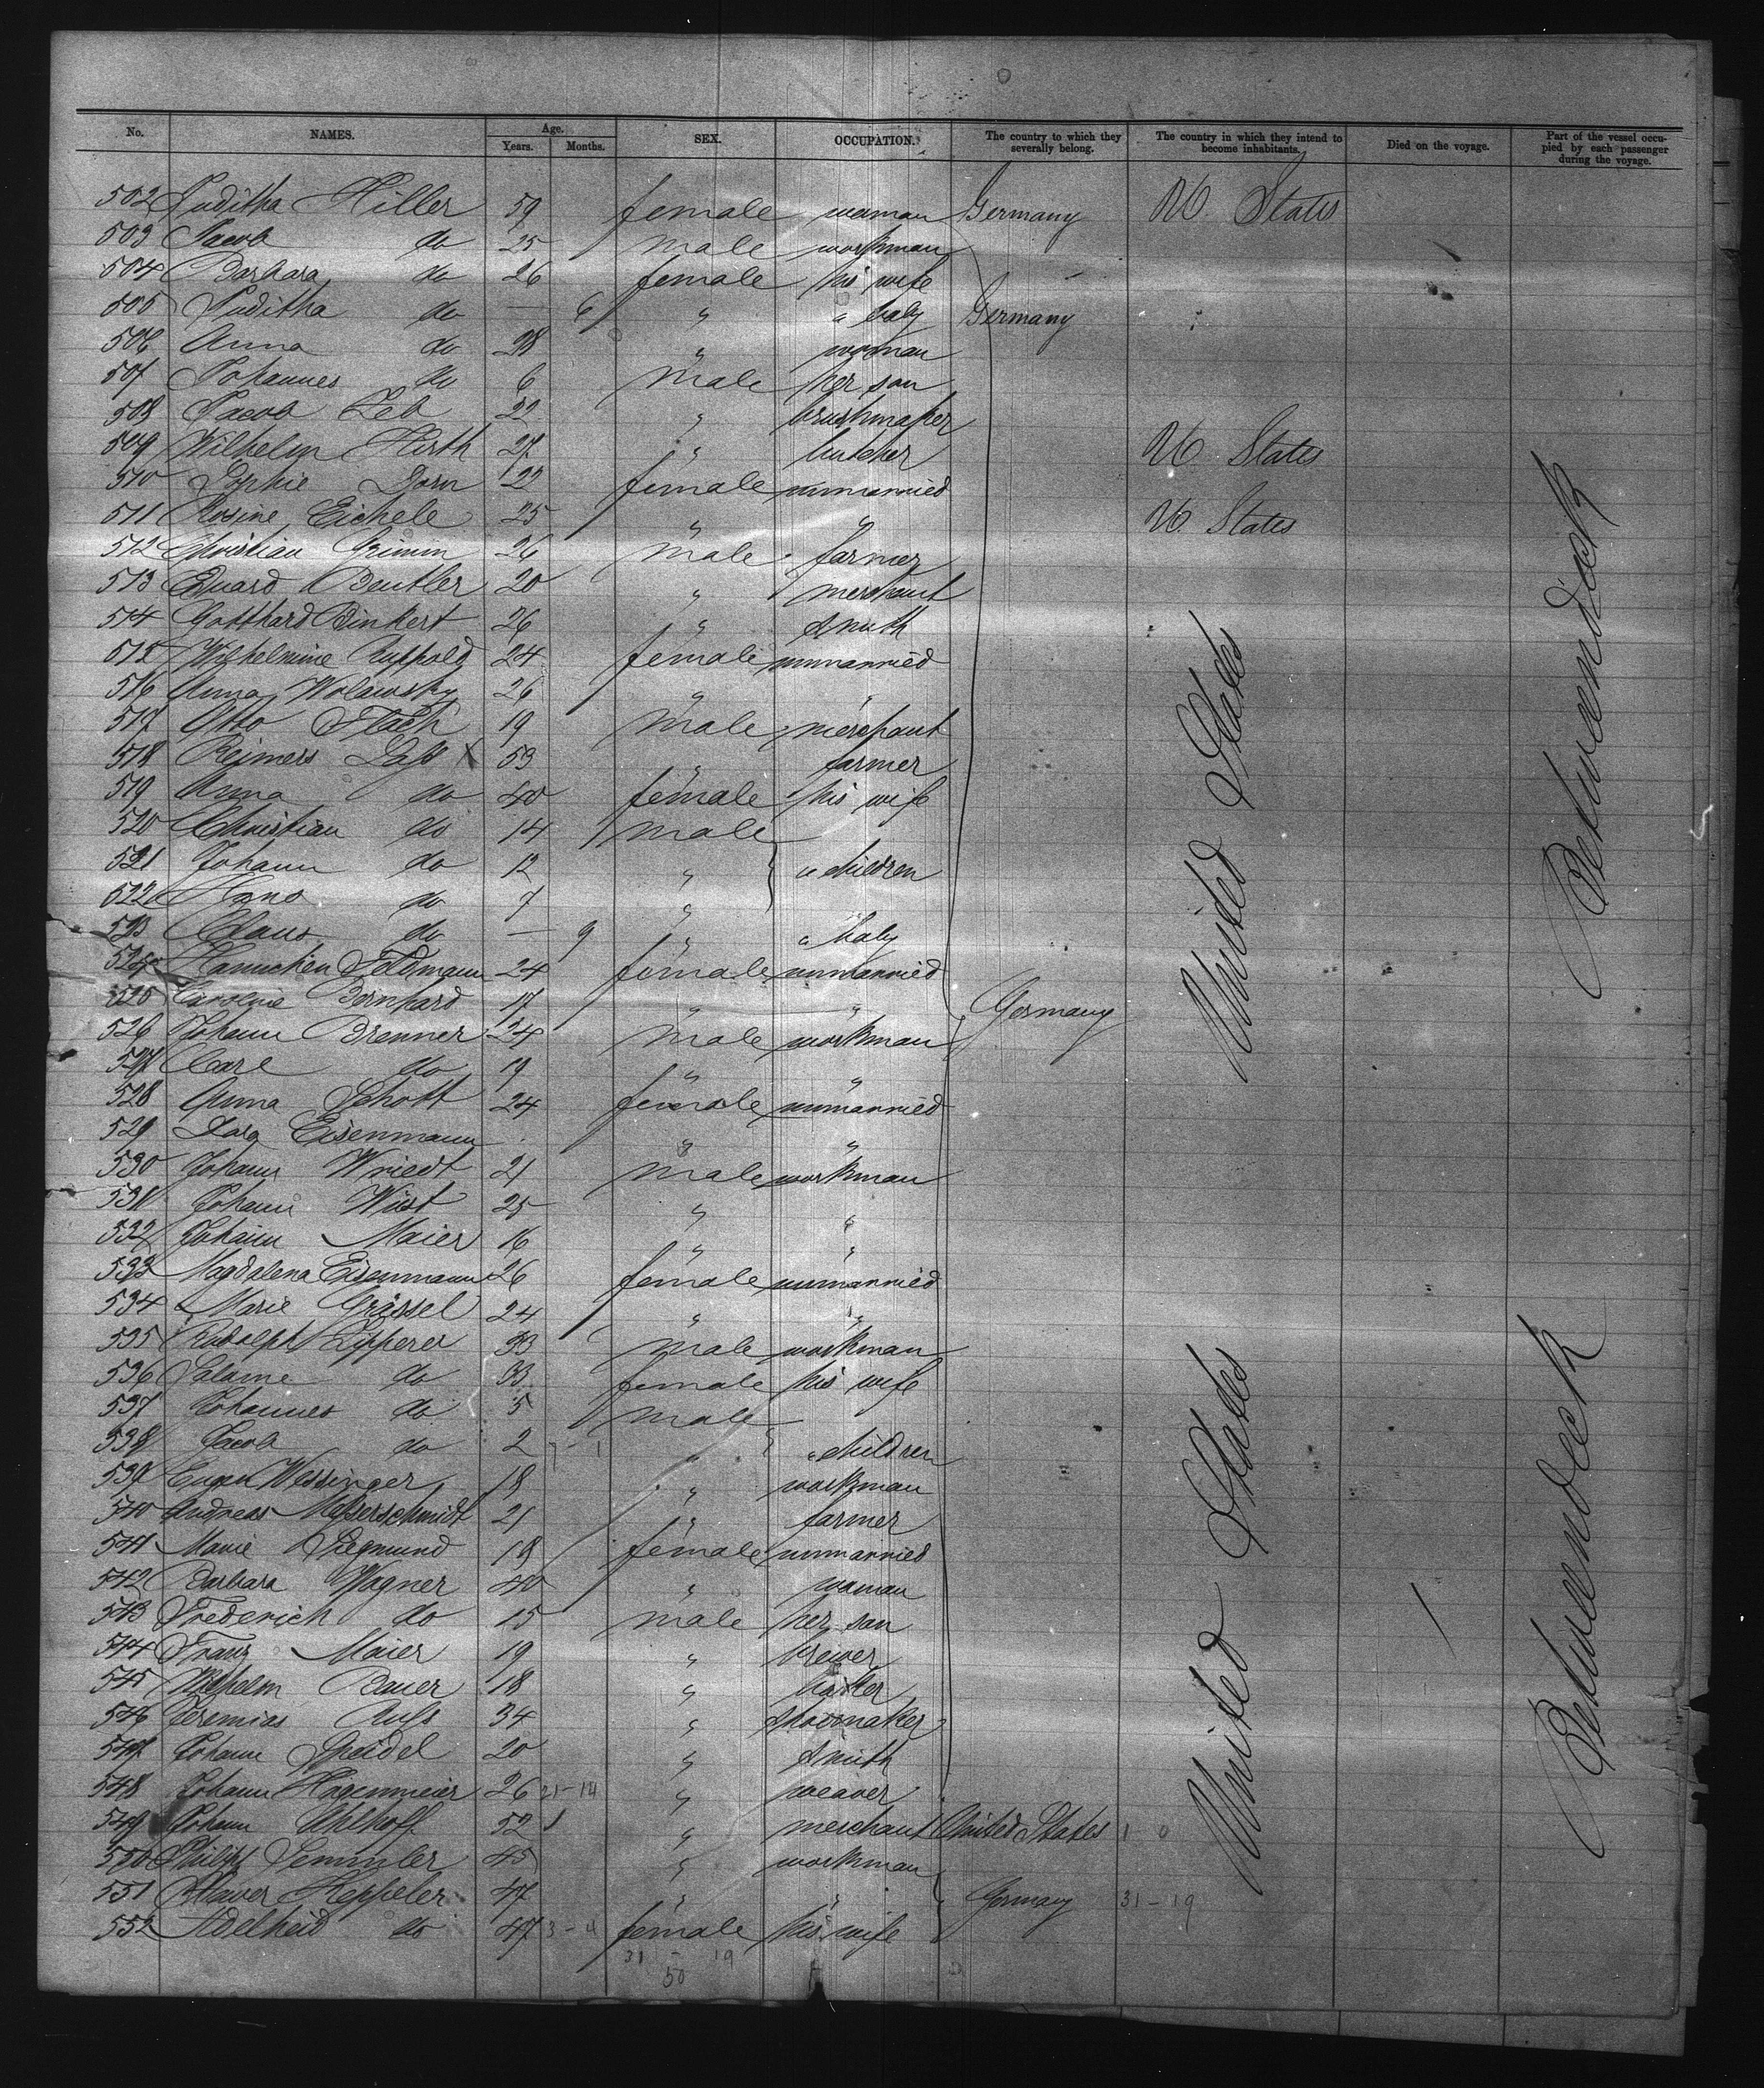 No. NAMES. Age. Years. Months. SEX. OCCUPATION. The country to which they severally belong. The country in which they intend to become inhabitants. Died on the voyage. Part of the vessel occupied by each passenger during the voyage.
502 Juditha Hiller 59 female woman Germany U. States
503 Jacob do 25 male workman
504 Barbara do 26 female his wife
505 Juditha do — 6 " " baby Germany
506 Anna do 28 " woman
507 Johannes do 6 male her son
508 Jacob Zeb 22 " brushmaker
509 Wilhelm Hirth 27 " butcher U. States
510 Sophie Dorn 22 female unmarried
511 Rosine Eichele 25 " " U. States
512 Christian Grimm 26 male farmer
513 Eduard Beutler 20 " merchant
514 Gotthard Binkert 26 " smith
515 Wilhelmine Ruppold 24 female unmarried
516 Anna Wolawsky 26 " "
517 Otto Stach 19 male merchant
518 Reimers Laß X 53 " farmer
519 Anna do 40 female his wife
520 Christian do 14 male
521 Johann do 12 " " children
522 Hans do 7 "
523 Claus do — 9 " " baby
524 Hannchen Feldmann 24 female unmarried
525 Caroline Bernhard 17 " " Germany
526 Johann Brenner 24 male workman
527 Carl do 19 " "
528 Anna Schott 24 female unmarried
529 Eisenmann " "
530 Johann Wriedt 21 male workman
531 Johann Wüst 25 " "
532 Johann Maier 16 " "
533 Magdalena Eisenmann 26 female unmarried
534 Marie Grässel 24 " "
535 Rudolph Lipperer 33 male workman
536 Salome do 33 female his wife
537 Johannes do 5 male
538 Jacob do 2 " " children
539 Eugen Wessinger 18 " workman
540 Andreas Messerschmidt 21 " farmer
541 Marie Siegmund 18 female unmarried
542 Barbara Wagner 40 " woman
543 Frederich do 15 male her son
544 Franz Maier 19 " brewer
545 Wilhelm Bauer 18 "
546 Jeremias Ruß 34 " shoemaker
547 Johann Speidel 20 " smith
548 Johann Hagenmeier 26 21-14 " weaver
549 Johann Uhlhoff 52 " merchant United States 1 0
550 Philipp Semmler 45 " workman
551 Xaver Keppeler 47 " " Germany 31-19
552 Adelheid do 47 3-4 female his wife
31 - 19
50
United States
United States
Betweendeck
Betweendeck